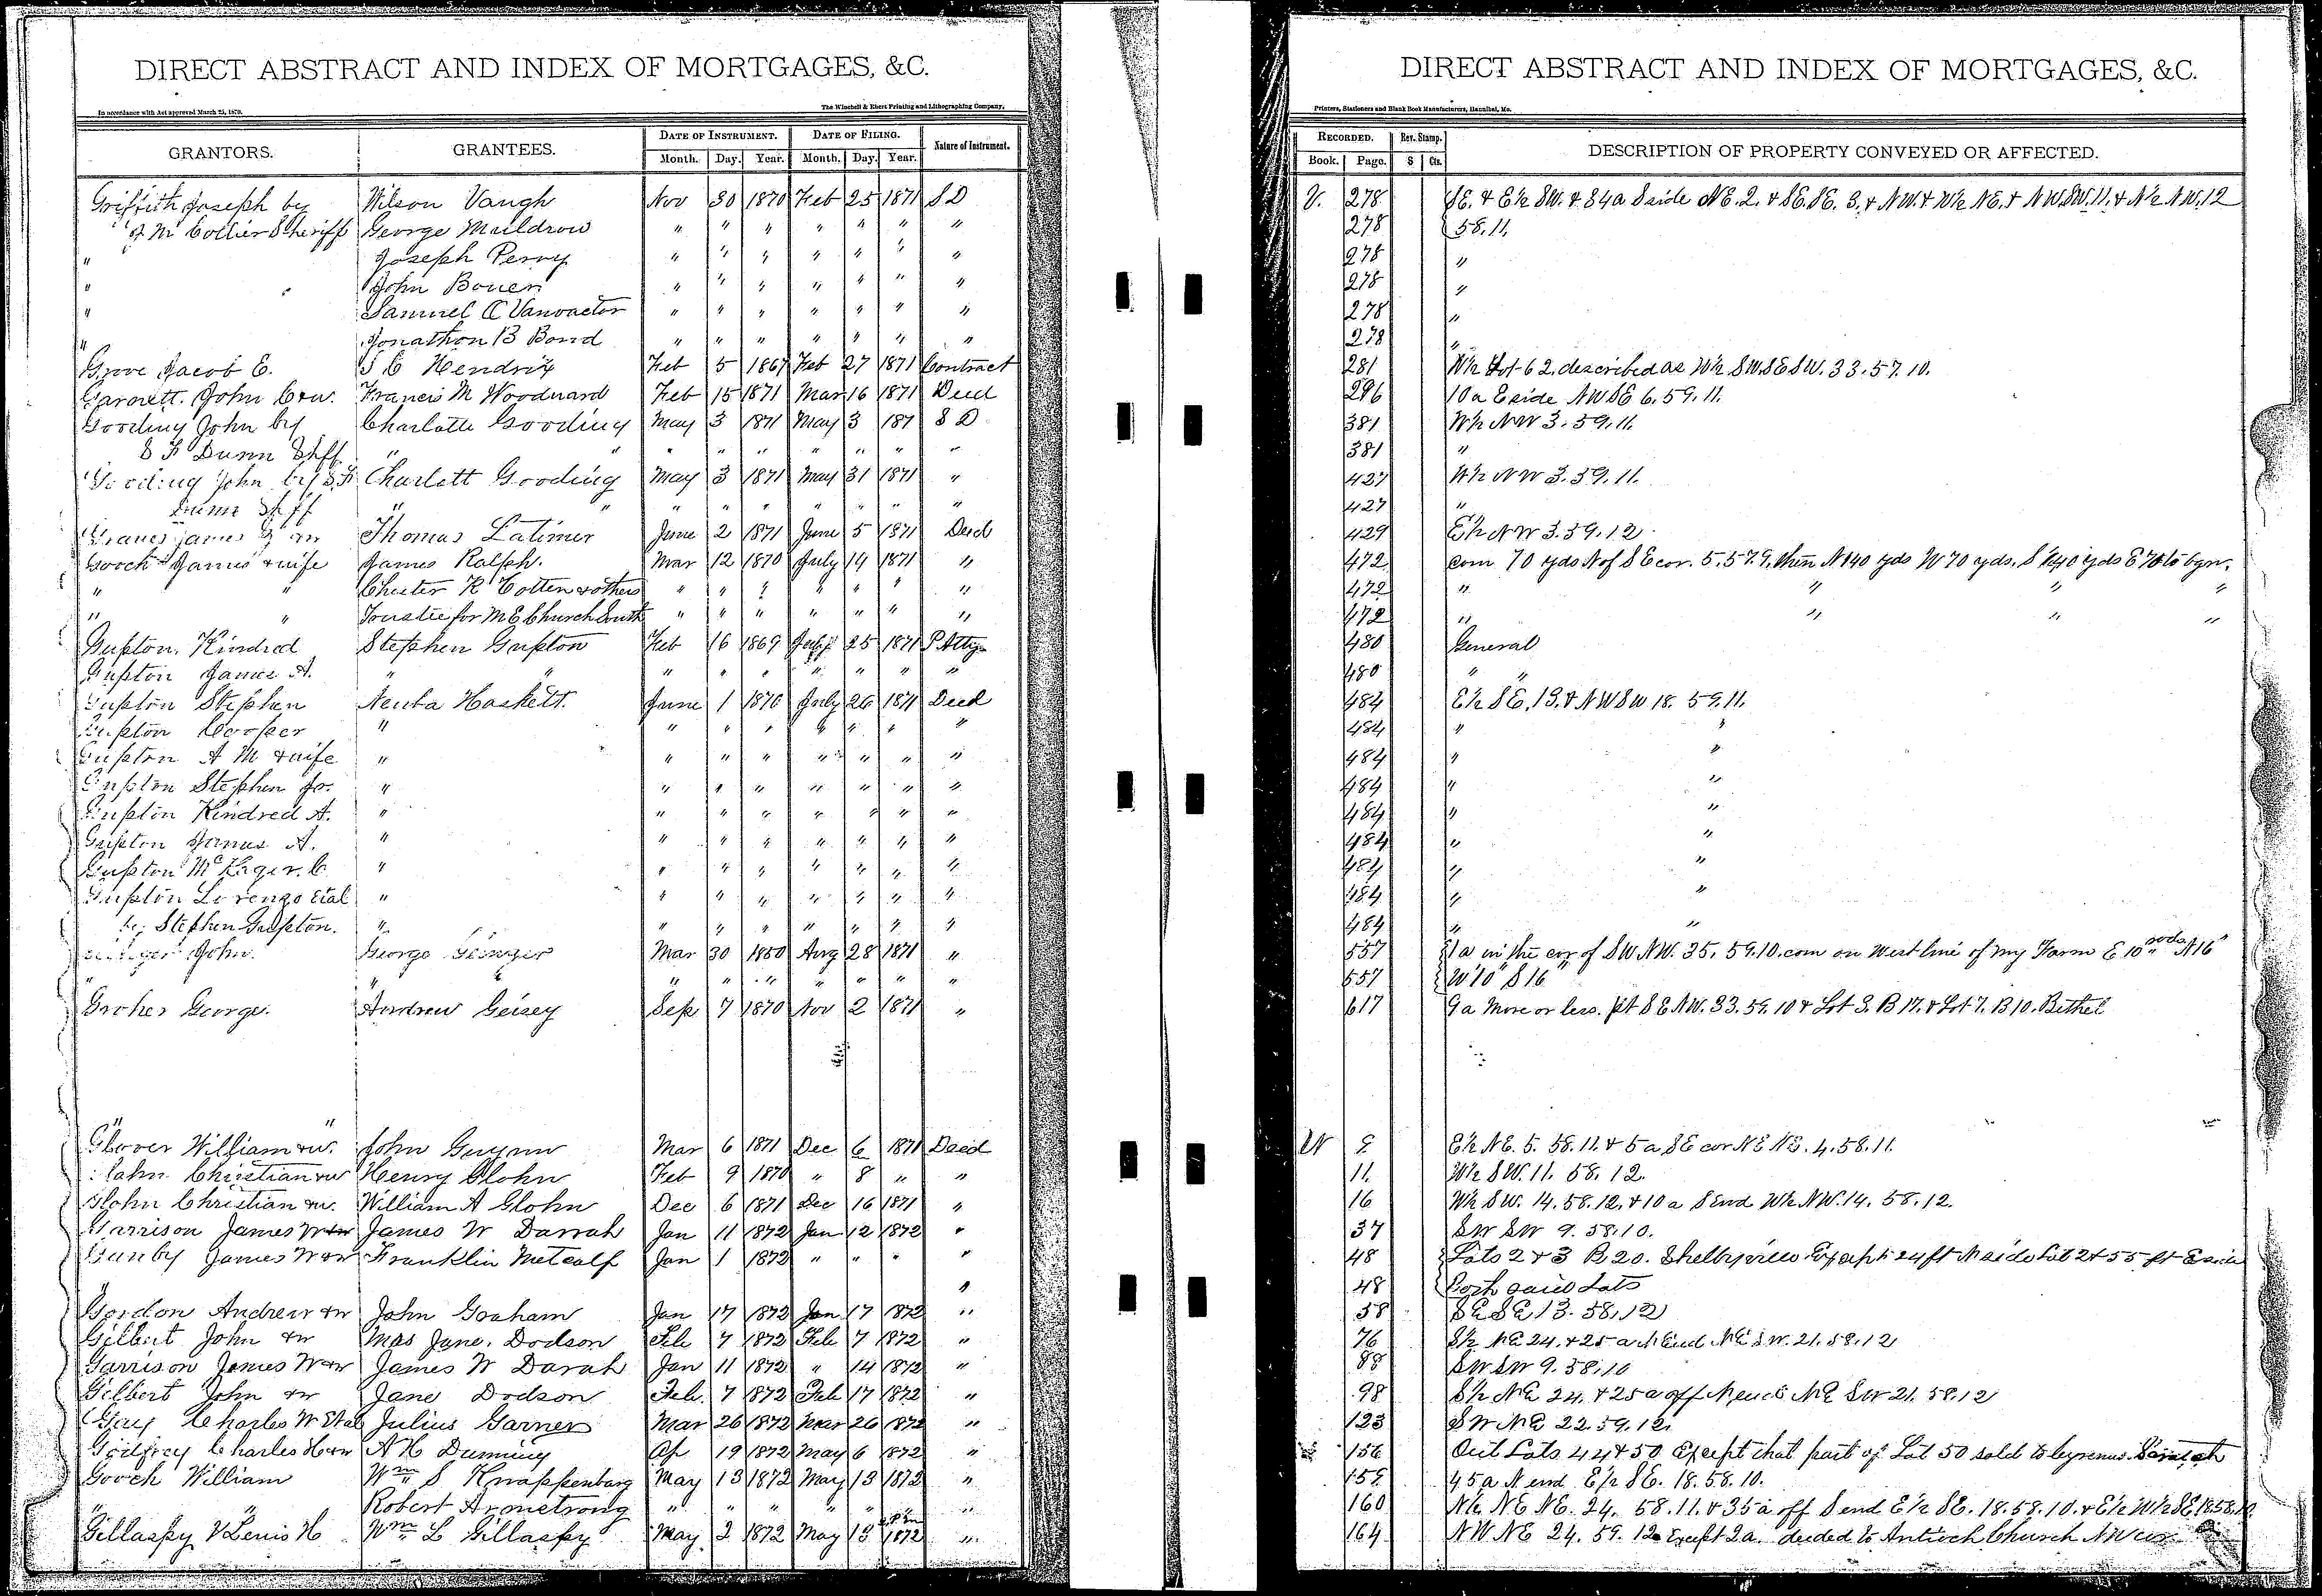 DIRECT ABSTRACT AND INDEX OF MORTGAGES, &C.
In accordance with Act approved March 25, 1870.
The Winchell & Ebert Printing and Lithographing Company,
GRANTORS. GRANTEES. DATE OF INSTRUMENT. DATE OF FILING. Nature of Instrument.
Month. Day. Year. Month. Day. Year.
Griffith Joseph by Wilson Vaugh Nov 30 1870 Feb 25 1871 S D
J M Collier Sheriff George Muldrow " " " " " " "
" Joseph Perry " " " " " " "
" John Bower " " " " " " "
" Samuel C Vanvactor " " " " " " "
" Jonathon B Bond " " " " " " "
Grove Jacob E. S C Hendrix Feb 5 1867 Feb 27 1871 Contract
Garnett. John C &w. Francis M Woodward Feb 15 1871 Mar 16 1871 Deed
Gooding John by Charlotte Gooding May 3 1871 May 3 187 S D
S F Dunn Shff " " " " " " " "
Gooding John by S F Charlott Gooding May 3 1871 May 31 1871 "
Dunn Shff " " " " " " " "
Graves James Thomas Latimer June 2 1871 June 5 1871 Deed
Gooch James & wife James Ralph. Mar 12 1870 July 14 1871 "
" " Chester K Cotten & others " " " " " " "
" " Trustee for M E Church South " " " " " " "
Gupton. Kindred Stephen Gupton Feb 16 1869 July 25 1871 P Atty
Gupton James A. " " " " " " " "
Gupton Stephen Haskett. June 1 1870 July 26 1871 Deed
Gupton Cooper " " " " " " " "
Gupton A M & wife " " " " " " " "
Gupton Stephen Jr. " " " " " " " "
Gupton Kindred A. " " " " " " " "
Gupton James A. " " " " " " " "
Gupton C. " " " " " " " "
Gupton Lorenzo etal " " " " " " " "
by Stephen Gupton. " " " " " " " "
John. George Mar 30 1850 Aug 28 1871 "
" " " " " " " " "
Groher George. Andrew Geisey Sep 7 1870 Nov 2 1871 "
" "
Glover William &w. John Guynn Mar 6 1871 Dec 6 1871 Deed
Glahn Christian &w Henry Glohn Feb 9 1870 " 8 " "
Glohn Christian &w. William A Glohn Dec 6 1871 Dec 16 1871 "
Garrison James W &w James W Darrah Jan 11 1872 Jan 12 1872 "
Gunby James W &w Franklin Metcalf Jan 1 1872 " " " "
"
Gordon Andrew &w John Graham Jan 17 1872 Jan 17 1872 "
Gilbert John &w Mrs Jane. Dodson Feb 7 1872 Feb 7 1872 "
Garrison James W &w James W Darah Jan 11 1872 " 14 1872 "
Gilbert John &w Jane Dodson Feb. 7 1872 Feb 17 1872 "
Gay Charles W etal Julius Garner Mar 26 1872 Mar 26 1872 "
Godfrey Charles H &w A H Dunning Ap 19 1872 May 6 1872 "
Gooch William Wm S Knappenbarg May 13 1872 May 13 1872 "
" " Robert Armstrong " " " " "
Gillaspy Lewis H Wm L Gillaspy May 2 1872 May 13 1872 "
DIRECT ABSTRACT AND INDEX OF MORTGAGES, &C.
Printers, Stationers and Blank Book Manufacturers, Hannibal, Mo.
RECORDED. Rev. Stamp. DESCRIPTION OF PROPERTY CONVEYED OR AFFECTED.
Book. Page. $ Cts.
V. 278 SE. & E½ SW. & 84a S side NE. 2. & SE. SE. 3. & NW. & W½ NE. & NW. SW. 11. & N½ NW. 12
278 58.11.
278 "
278 "
278 "
278 "
281 W½ Lot 62, described as W½ SW. SE SW. 33. 57. 10.
296 10a E side NW SE 6. 59. 11.
381 W½ NW 3. 59. 11.
381 "
427 W½ NW 3. 59. 11.
427 "
429 E½ NW 3. 59. 12.
472 com 70 yds N of SE cor. 5. 57. 9, then N 140 yds W 70 yds. S 140 yds E 70 to bgn.
472 " " " "
472 " " " "
480 General
480 " "
484 E½ SE. 13. & NW SW 18. 59. 11.
484 " "
484 " "
484 " "
484 " "
484 " "
484 " "
484 " "
484 " "
557 1a in the cor of SW NW. 35. 59. 10. com on West line of my Farm E 10 rods N 16"
557 W 10" S 16
617 9a more or less. pt SE NW. 33. 59. 10 & Lot 3. B 17. & Lot 7. B 10. Bethel
W E½ NE. 5. 58. 11. & 5a SE cor NE NE. 4. 58. 11.
11. W½ SW. 11. 58. 12.
16 W½ SW. 14. 58. 12. & 10a S end W½ NW. 14. 58. 12.
37 SW SW 9. 58. 10.
48 Lots 2 & 3 B 20. Shelbyville Except 24 ft N side Lot 2 & 55 ft E side
48 Both said Lots
58 SE SE 13. 58. 12
76 S½ NE 24. & 25a N end NE SW. 21. 58. 12
88 SW SW 9. 58. 10
98 S½ NE 24. & 25a off N end NE SW 21. 58. 12
123 SW NE 22. 59. 12.
156 Out Lots 44 & 50. Except that part of Lot 50 sold to Cyrenus
159 45a N end E½ SE. 18. 58. 10.
160 N½ NE NE. 24. 58. 11. & 35a off S end E½ SE. 18. 58. 10. & E½ W½ SE 18. 58. 10
164 NW NE 24. 59. 12 Except 2a. deeded to Antioch Church NW cor